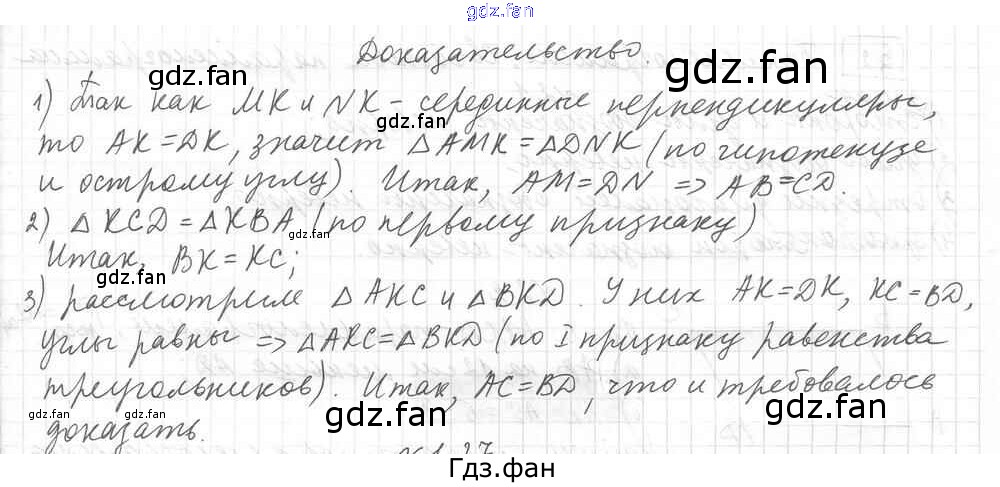 gdz.fan
Доказательство.
gdz.fan
gdz.fan
1) Так как MK и NK - серединные перпендикуляры,
gdz.fan
то AK=DK, значит △AMK=△DNK (по гипотенузе
и острому углу). Итак, AM=DN => AB=CD.
2) △KCD=△KBA (по первому признаку)
gdz.fan
Итак, BK=KC;
gdz.fan
gdz.fan
3) рассмотрим △AKC и △BKD. У них AK=DK, KC=BD,
углы равны => △AKC=△BKD (по I признаку равенства
треугольников). Итак, AC=BD, что и требовалось
gdz.fan
gdz.fan
gdz.fan
доказать.
Гдз.фан